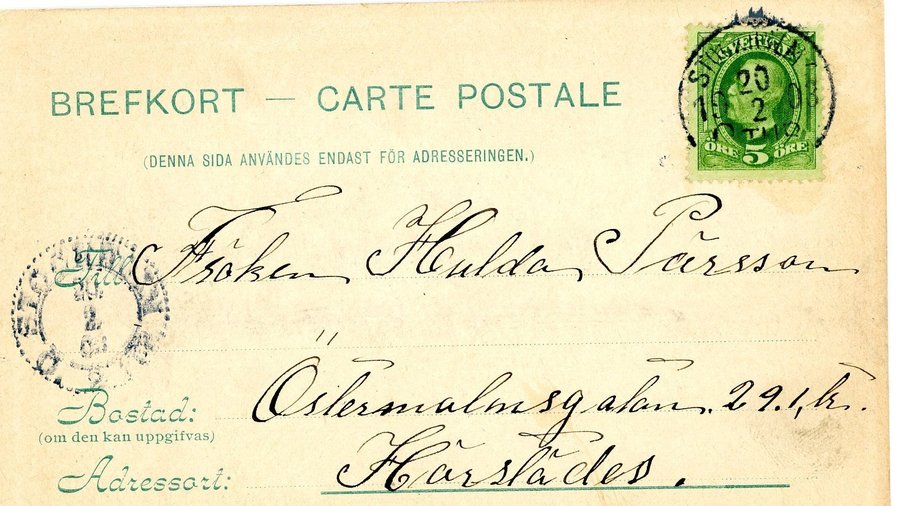 BREFKORT — CARTE POSTALE
(DENNA SIDA ANVÄNDES ENDAST FÖR ADRESSERINGEN.)
SVERIGE
20
2
5
ÖRE ÖRE
Till Fröken Hulda Pärsson
Östermalmsgatan. 29. 1, tr.
Bostad:
(om den kan uppgifvas)
Adressort: Härstädes.